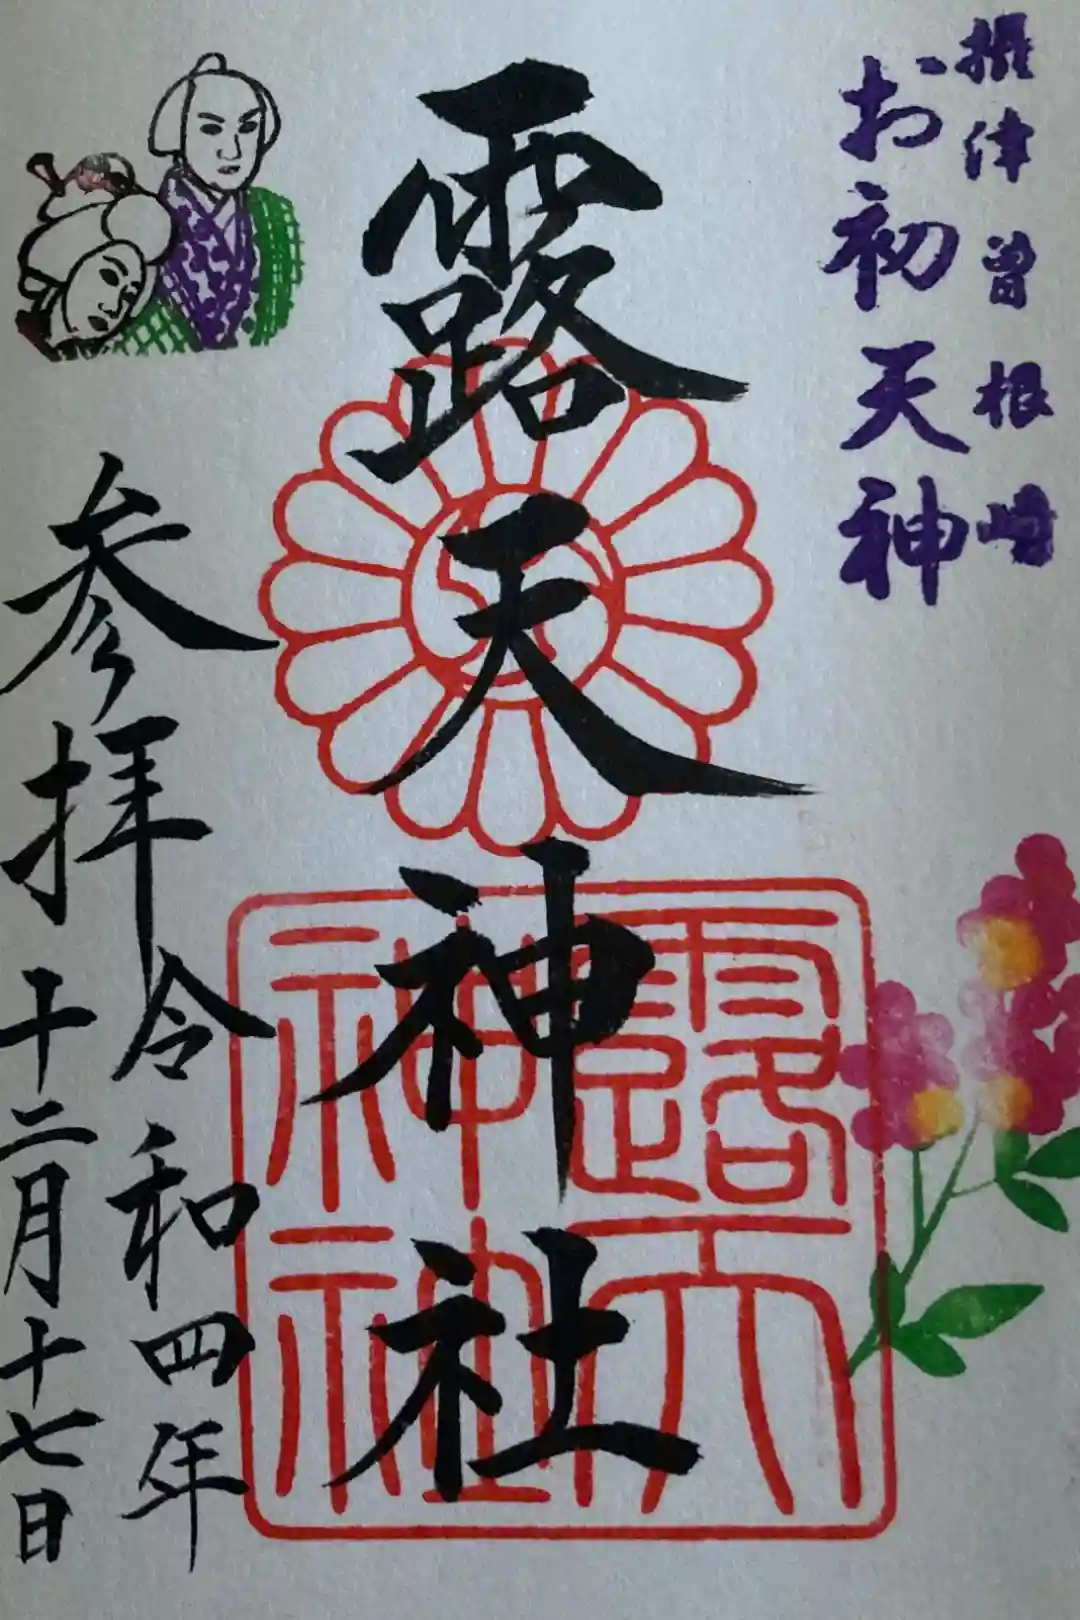 摂津曽根崎
お初天神
露天神社
露天
神社
参拝
令和四年
十二月十七日